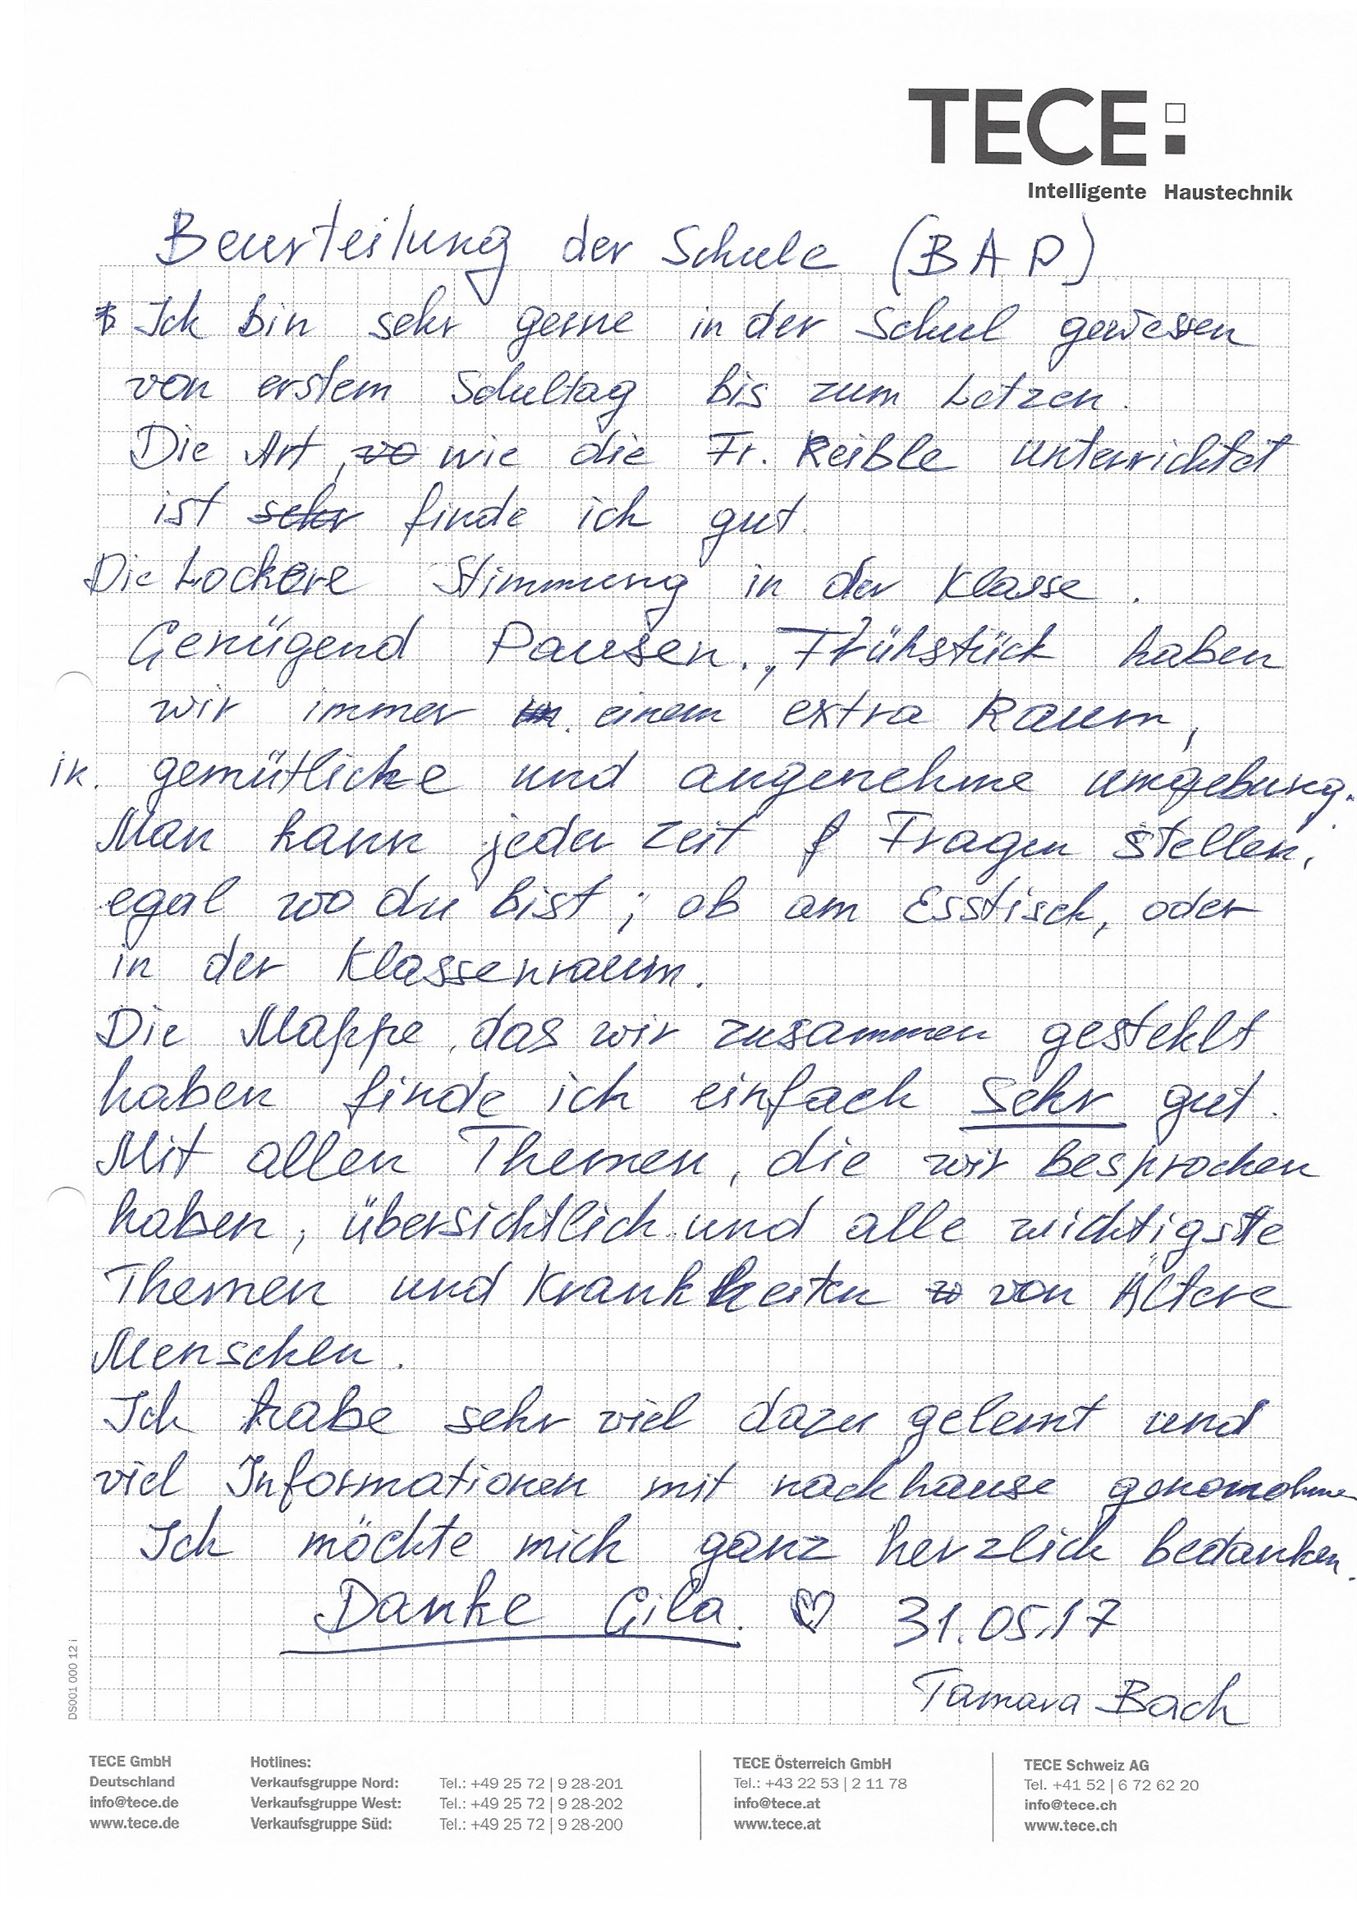 TECE
Intelligente Haustechnik
Beurteilung der Schule (BAP)
Ich bin sehr gerne in der Schul gewesen
von erstem Schultag bis zum Letzen.
Die Art, wo wie die Fr. Reible unterrichtet
ist sehr finde ich gut.
Die Lockere Stimmung in der Klasse.
Genügend Pausen., Frühstück haben
wir immer im einem extra Raum,
in. gemütliche und angenehme umgebung.
Man kann jeder Zeit f Fragen stellen,
egal wo du bist; ob am Esstisch, oder
in der Klassenraum.
Die Mappe, das wir zusammen gestehlt
haben finde ich einfach Sehr gut.
Mit allen Themen, die wir besprochen
haben, übersichtlich und alle wichtigste
Themen und Krankheiten von Ältere
Menschen.
Ich habe sehr viel dazu gelernt und
viel Informationen mit nachhause genomohmen
Ich möchte mich ganz herzlich bedanken.
Danke Gila. 31.05.17
Tamara Bach
DS001 000 12 i
TECE GmbH Hotlines: TECE Österreich GmbH TECE Schweiz AG
Deutschland Verkaufsgruppe Nord: Tel.: +49 25 72 | 9 28-201 Tel.: +43 22 53 | 2 11 78 Tel. +41 52 | 6 72 62 20
info@tece.de Verkaufsgruppe West: Tel.: +49 25 72 | 9 28-202 info@tece.at info@tece.ch
www.tece.de Verkaufsgruppe Süd: Tel.: +49 25 72 | 9 28-200 www.tece.at www.tece.ch